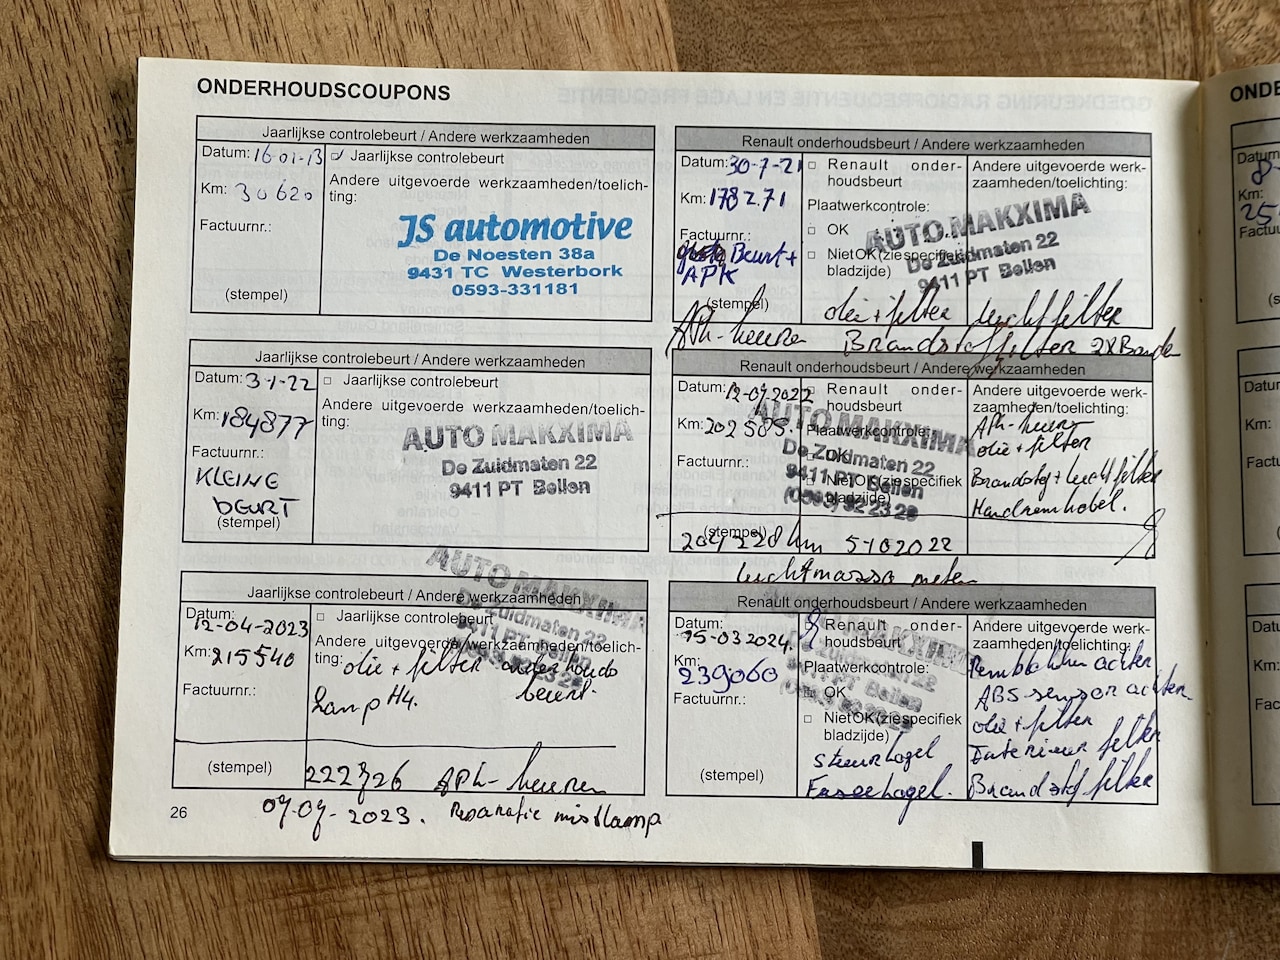 ONDERHOUDSCOUPONS
Jaarlijkse controlebeurt / Andere werkzaamheden
Datum: 16-01-13
Jaarlijkse controlebeurt
Km: 30620
Andere uitgevoerde werkzaamheden/toelich-
ting:
Factuurnr.:
JS automotive
De Noesten 38a
9431 TC Westerbork
0593-331181
(stempel)
Renault onderhoudsbeurt / Andere werkzaamheden
Datum: 30-7-21
Renault onder-
houdsbeurt
Andere uitgevoerde werk-
zaamheden/toelichting:
Km: 178271
Plaatwerkcontrole:
OK
Factuurnr.:
Beurt +
APK
Niet OK (zie specifiek
bladzijde)
AUTO MAKXIMA
De Zuidmaten 22
9411 PT Beilen
(stempel)
olie + filter luchtfilter
APk-keuren Brandstoffilter 2X Bande
Jaarlijkse controlebeurt / Andere werkzaamheden
Datum: 3-1-22
Jaarlijkse controlebeurt
Km: 184877
Andere uitgevoerde werkzaamheden/toelich-
ting:
Factuurnr.:
KLEINE
BEURT
(stempel)
AUTO MAKXIMA
De Zuidmaten 22
9411 PT Beilen
Renault onderhoudsbeurt / Andere werkzaamheden
Datum: 12-09-2022
Renault onder-
houdsbeurt
Andere uitgevoerde werk-
zaamheden/toelichting:
Km: 202585.
Plaatwerkcontrole:
OK
Factuurnr.:
Niet OK (zie specifiek
bladzijde)
AUTO MAKXIMA
De Zuidmaten 22
9411 PT Beilen
(0593) 92 23 28
APk-keuren
olie + filter
Brandstof + lucht filter
Handremkabel.
(stempel)
204228 km 5-10 2022
luchtmassa meter
Jaarlijkse controlebeurt / Andere werkzaamheden
Datum: 12-04-2023
Jaarlijkse controlebeurt
Km: 215540
Andere uitgevoerde werkzaamheden/toelich-
ting: olie + filter onderhouds
beurt.
Factuurnr.:
Lamp H4.
AUTO MAKXIMA
De Zuidmaten 22
9411 PT Beilen
(0593) 92 23 28
(stempel)
APk-keuren
07-09-2023. Reparatie mistlamp
Renault onderhoudsbeurt / Andere werkzaamheden
Datum: 15-03 2024.
Renault onder-
houdsbeurt
Andere uitgevoerde werk-
zaamheden/toelichting:
Km: 239060
Plaatwerkcontrole:
OK
Factuurnr.:
Niet OK (zie specifiek
bladzijde)
AUTO MAKXIMA
De Zuidmaten 22
9411 PT Beilen
Remblokken achter
ABS sensor achter
olie + filter
Interieur filter
Brandstof filter
stuurkogel
Fuseekogel.
(stempel)
26
ONDE
Datum
Km:
25
Factuu
Datum:
Km:
Fact
Datu
Km:
Fac